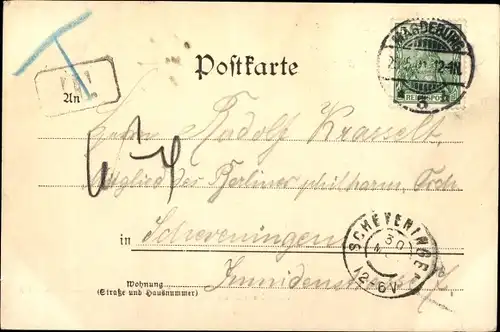 T
Postkarte
MAGDEBURG
12-1N.
REICHSPOST
An
Herrn Rudolf Krasselt,
Mitglied des Berliner philharm. Orch.
in Scheveningen
SCHEVENINGEN
30
12-6V
Wohnung
(Straße und Hausnummer)